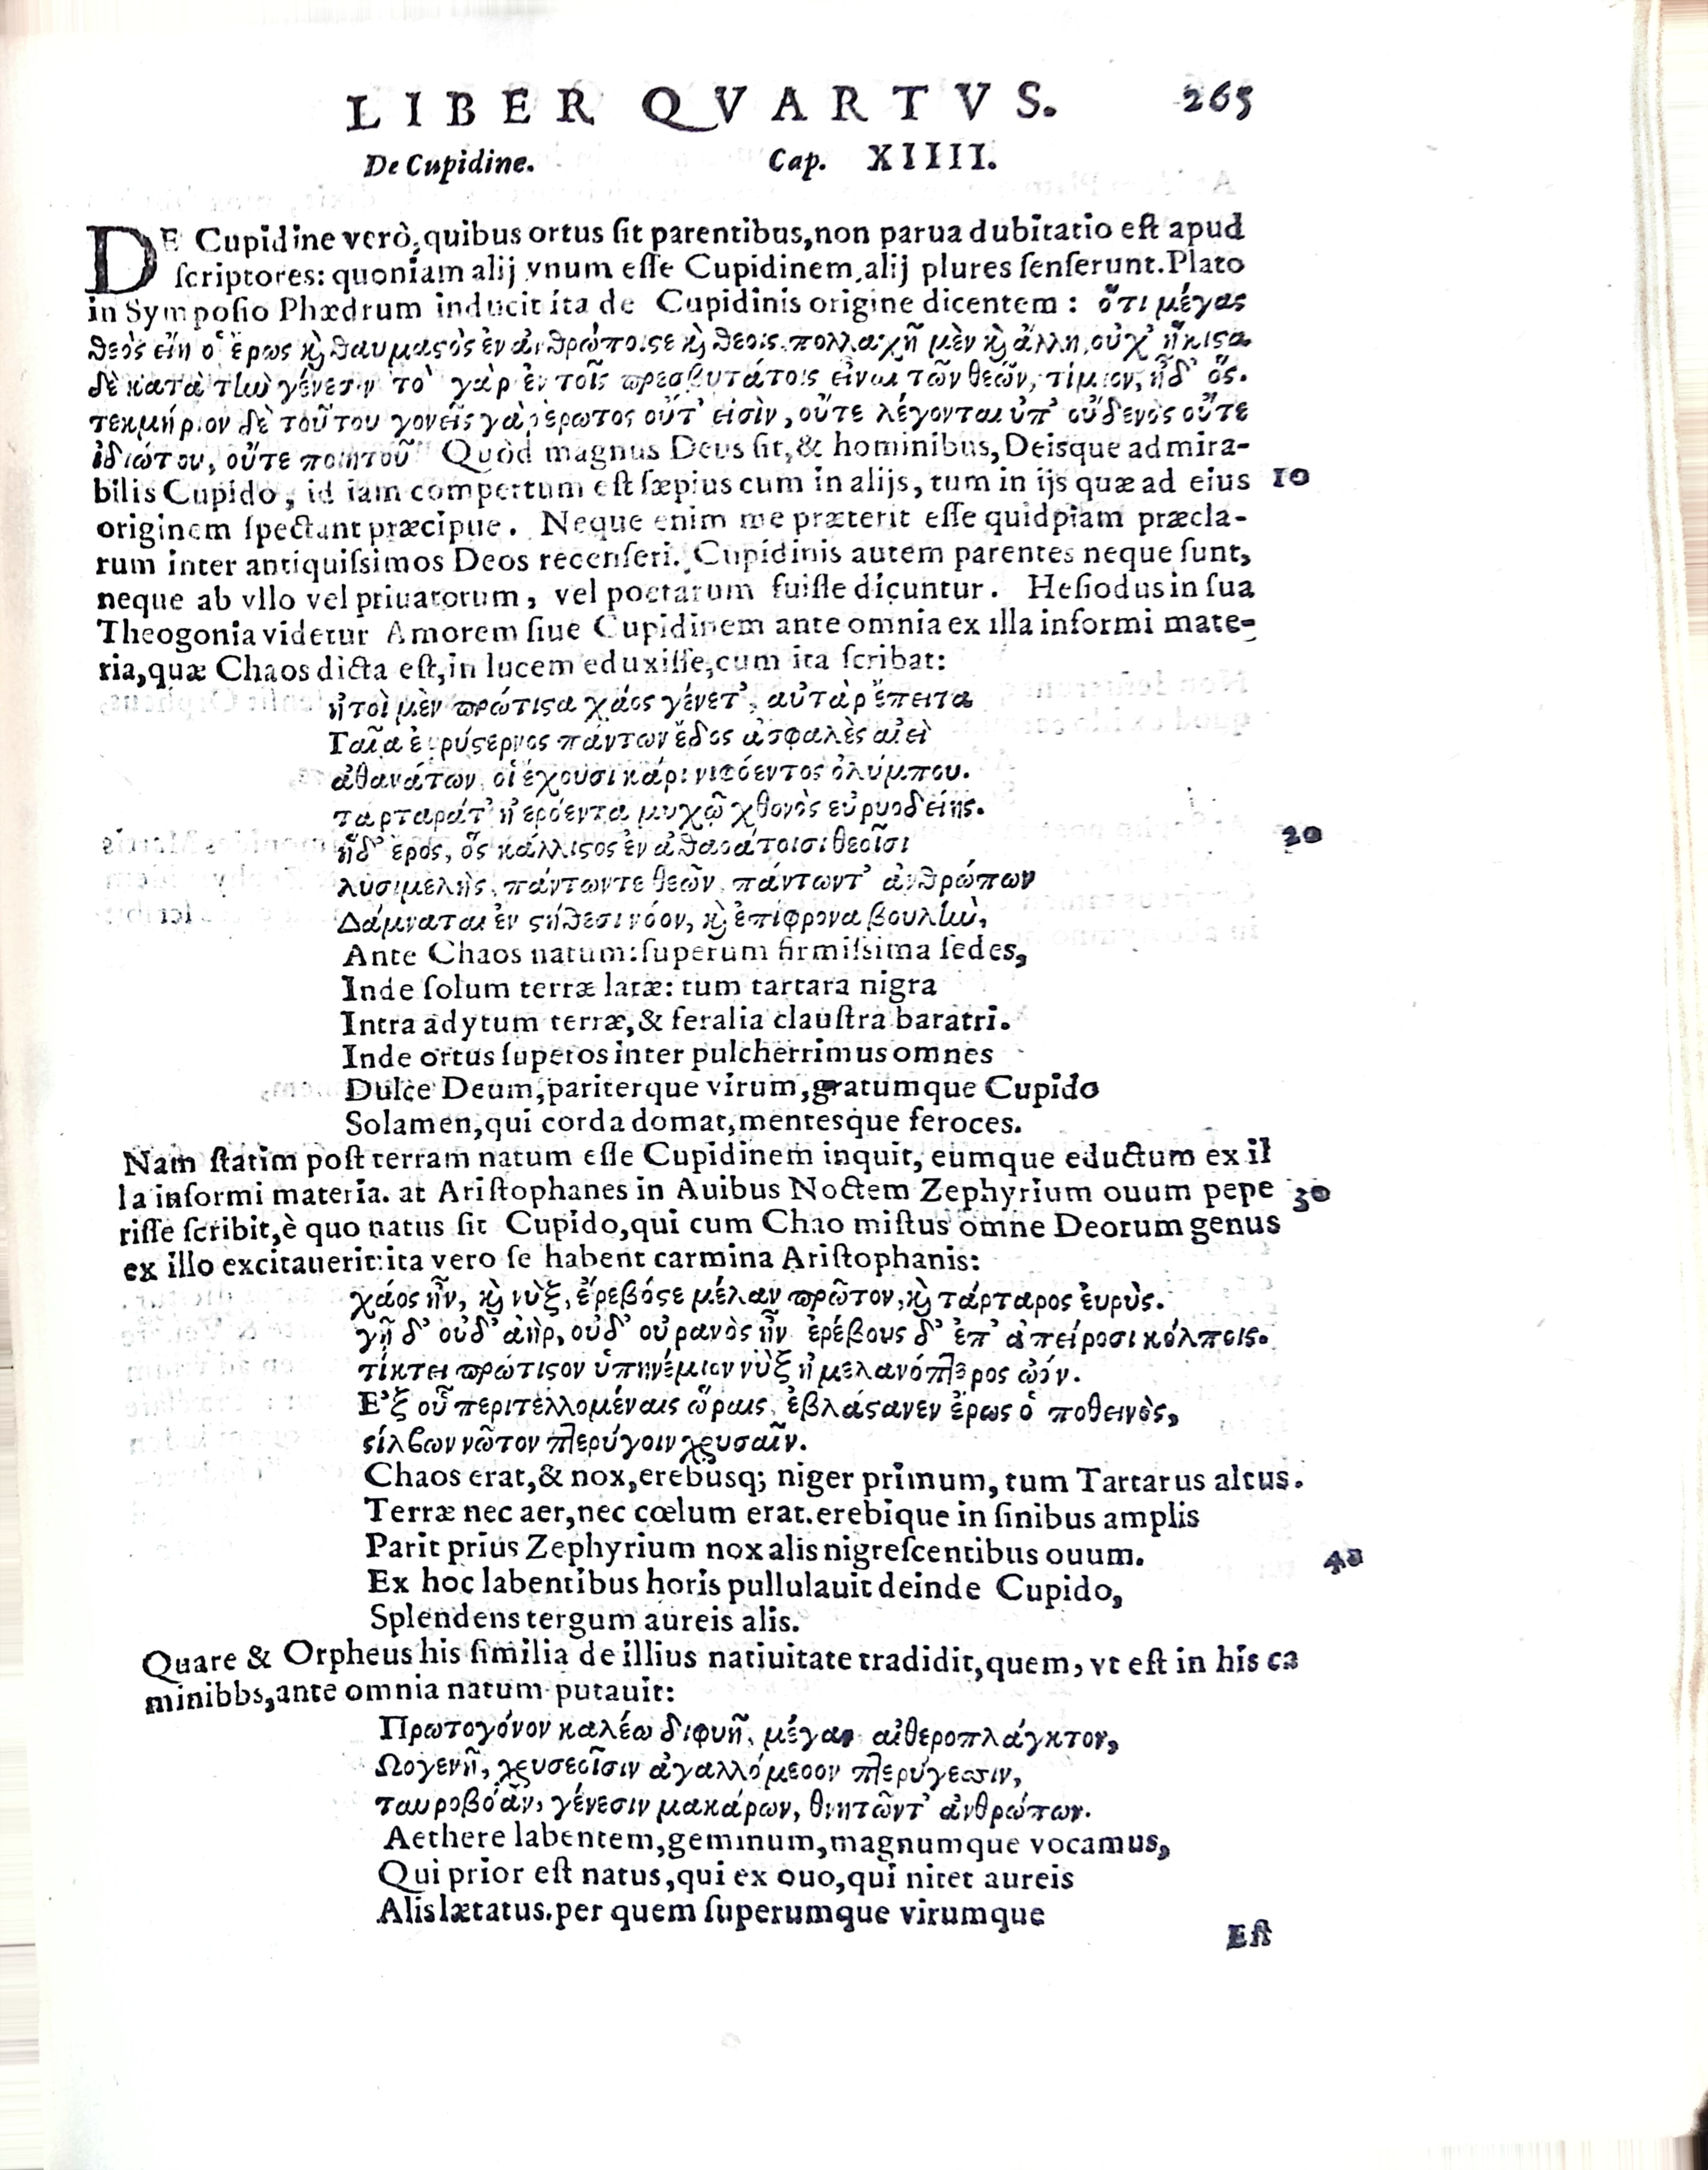 LIBER QVARTVS. 265
De Cupidine. Cap. XIIII.
DE Cupidine verò, quibus ortus ſit parentibus, non parua dubitatio eſt apud
ſcriptores: quoniam alij vnum eſſe Cupidinem, alij plures ſenſerunt. Plato
in Sympoſio Phædrum inducit ita de Cupidinis origine dicentem: ὅτι μέγας
θεὸς εἴη ὁ ἔρως ϗ θαυμαϛὸς ἐν ἀνθρώποιςε ϗ θεοῖς. πολλαχῆ μὲν ϗ ἄλλη, οὐχ' ἥκιϛα
δὲ κατὰ τὴν γένεσιν τὸ γὰρ ἐν τοῖς πρεσβυτάτοις εἶναι τῶν θεῶν, τίμιον, ἦδ' ὅς.
τεκμήριον δὲ τούτου γονεῖς γὰρ ἔρωτος οὔτ' εἰσὶν, οὔτε λέγονται ὑπ' οὐδενὸς οὔτε
ἰδιώτου, οὔτε ποιητοῦ Quòd magnus Deus ſit, & hominibus, Deisque admira-
bilis Cupido, id iam compertum eſt ſæpius cum in alijs, tum in ijs quæ ad eius 10
originem ſpectant præcipue. Neque enim me præterit eſſe quidpiam præcla-
rum inter antiquiſsimos Deos recenſeri. Cupidinis autem parentes neque ſunt,
neque ab vllo vel priuatorum, vel poetarum fuiſſe dicuntur. Heſiodus in ſua
Theogonia videtur Amorem ſiue Cupidinem ante omnia ex illa informi mate-
ria, quæ Chaos dicta eſt, in lucem eduxiſſe, cum ita ſcribat:
ἤτοὶ μὲν πρώτιϛα χάος γένετ', αὐτὰρ ἔπειτα
Γαῖα ἐυρύϛερνος πάντων ἕδος ἀσφαλὲς αἰεὶ
ἀθανάτων, οἱ ἔχουσι κάρη νιφόεντος ὀλύμπου.
τάρταρά τ' ἠερόεντα μυχῷ χθονὸς εὐρυοδείης.
ἠδ' ἔρος, ὃς κάλλιϛος ἐν ἀθανάτοισι θεοῖσι 20
λυσιμελὴς, πάντων τε θεῶν, πάντων τ' ἀνθρώπων
Δάμναται ἐν ϛήθεσι νόον, ϗ ἐπίφρονα βουλὴν,
Ante Chaos natum: ſuperum firmiſsima ſedes,
Inde ſolum terræ latæ: tum tartara nigra
Intra adytum terræ, & feralia clauſtra baratri.
Inde ortus ſuperos inter pulcherrimus omnes
Dulce Deum, pariterque virum, gratumque Cupido
Solamen, qui corda domat, mentesque feroces.
Nam ſtatim poſt terram natum eſſe Cupidinem inquit, eumque eductum ex il
la informi materia. at Ariſtophanes in Auibus Noctem Zephyrium ouum pepe 30
riſſe ſcribit, è quo natus ſit Cupido, qui cum Chao miſtus omne Deorum genus
ex illo excitauerit: ita vero ſe habent carmina Ariſtophanis:
χάος ἦν, ϗ νὺξ, ἔρεβόςε μέλαν πρῶτον, ϗ τάρταρος ἐυρὺς.
γῆ δ' οὐδ' ἀὴρ, οὐδ' οὐρανὸς ἦν ἐρέβους δ' ἐπ' ἀπείροσι κόλποις.
τίκτει πρώτιϛον ὑπηνέμιον νὺξ ἡ μελανόπτερος ὠόν.
Ἐξ οὗ περιτελλομέναις ὥραις, ἐβλάϛανεν ἔρως ὁ ποθεινὸς,
ϛίλβων νῶτον πτερύγοιν χρυσαῖν.
Chaos erat, & nox, erebusq; niger primum, tum Tartarus altus.
Terræ nec aer, nec cœlum erat. erebique in ſinibus amplis
Parit prius Zephyrium nox alis nigreſcentibus ouum. 40
Ex hoc labentibus horis pullulauit deinde Cupido,
Splendens tergum aureis alis.
Quare & Orpheus his ſimilia de illius natiuitate tradidit, quem, vt eſt in his ca
minibbs, ante omnia natum putauit:
Πρωτογόνον καλέω διφυῆ, μέγαν αἰθεροπλάγκτον,
Ωογενῆ, χρυσεοῖσιν ἀγαλλόμεοον πτερύγεσσιν,
ταυροβόαν, γένεσιν μακάρων, θνητῶντ' ἀνθρώπων.
Aethere labentem, geminum, magnumque vocamus,
Qui prior eſt natus, qui ex ouo, qui nitet aureis
Alis lætatus. per quem ſuperumque virumque
Eſt